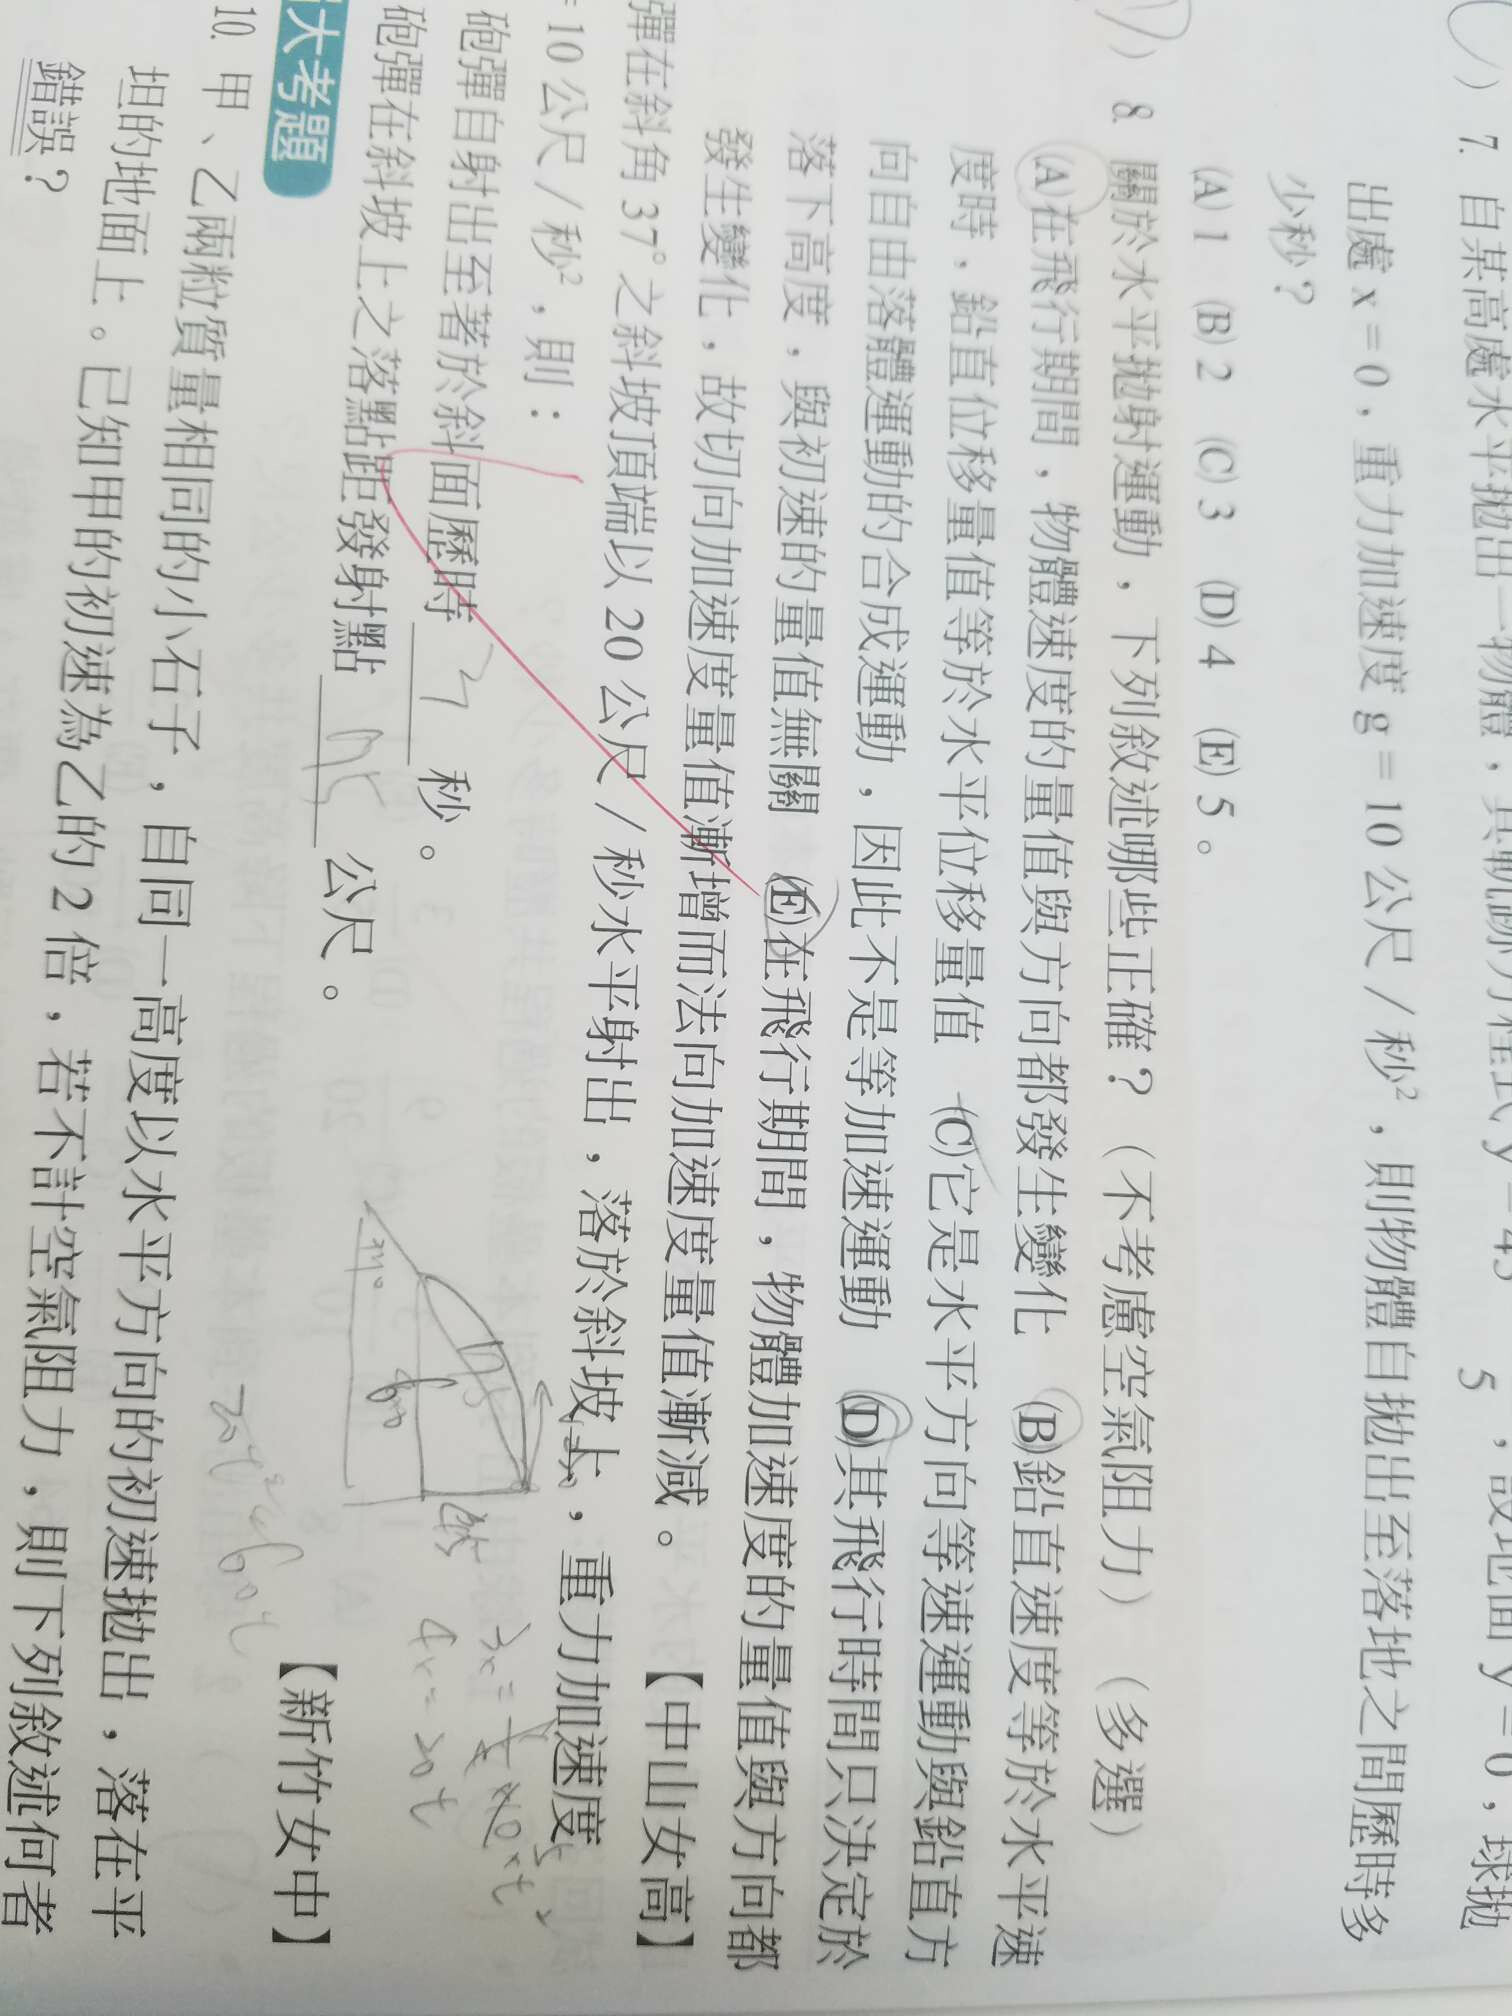 7. 自某高處水平拋出一物體，其軌跡方程式 y =
5，設地面 y = 0，球拋
出處 x = 0，重力加速度 g = 10 公尺／秒²，則物體自拋出至落地之間歷時多
少秒？
(A) 1 (B) 2 (C) 3 (D) 4 (E) 5。
8. 關於水平拋射運動，下列敘述哪些正確？（不考慮空氣阻力）（多選）
(A)在飛行期間，物體速度的量值與方向都發生變化 (B)鉛直速度等於水平速
度時，鉛直位移量值等於水平位移量值 (C)它是水平方向等速運動與鉛直方
向自由落體運動的合成運動，因此不是等加速運動 (D)其飛行時間只決定於
落下高度，與初速的量值無關 (E)在飛行期間，物體加速度的量值與方向都
發生變化，故切向加速度量值漸增而法向加速度量值漸減。
【中山女高】
彈在斜角 37° 之斜坡頂端以 20 公尺／秒水平射出，落於斜坡上，重力加速度
= 10 公尺／秒²，則：
砲彈自射出至著於斜面歷時 3 秒。
砲彈在斜坡上之落點距發射點 75 公尺。
【新竹女中】
45
60
75
3x = 1/2 × 10 × t²
4x = 20t
大考題
10. 甲、乙兩粒質量相同的小石子，自同一高度以水平方向的初速拋出，落在平
坦的地面上。已知甲的初速為乙的 2 倍，若不計空氣阻力，則下列敘述何者
錯誤？